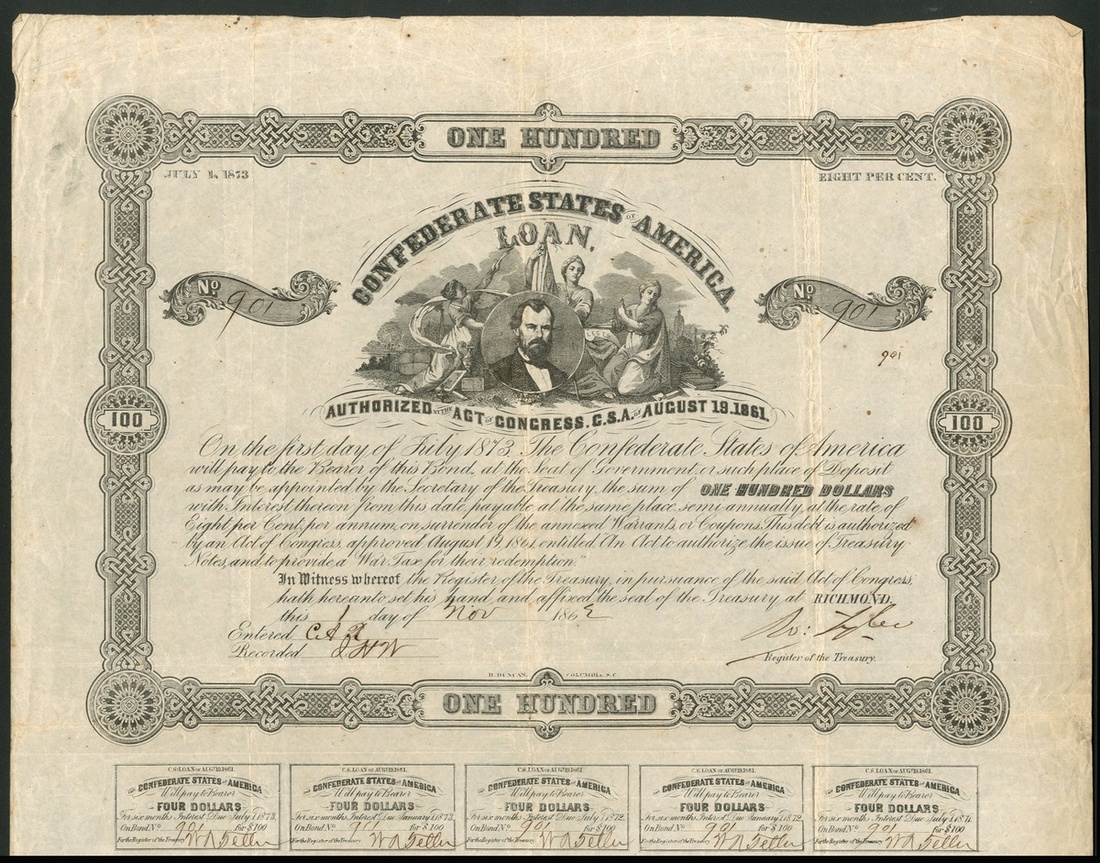 ONE HUNDRED
JULY 1, 1873
EIGHT PER CENT.
CONFEDERATE STATES OF AMERICA
LOAN,
No 901
No 901
901
AUTHORIZED BY THE ACT OF CONGRESS. C.S.A. OF AUGUST 19.1861.
100
100
On the first day of July 1873, The Confederate States of America
will pay to the Bearer of this Bond, at the Seat of Government, or such place of Deposit
as may be appointed by the Secretary of the Treasury, the sum of ONE HUNDRED DOLLARS
with Interest thereon from this date, payable at the same place, semi-annually, at the rate of
Eight per Cent, per annum, on surrender of the annexed Warrants, or Coupons. This debt is authorized
by an Act of Congress, approved August 19, 1861, entitled "An Act, to authorize the issue of Treasury
Notes, and to provide a War Tax for their redemption."
In Witness whereof the Register of the Treasury, in pursuance of the said Act of Congress,
hath hereunto set his hand, and affixed the seal of the Treasury at RICHMOND.
this 1 day of Nov 1862
Entered
Recorded
Ro: Tyler
Register of the Treasury.
B. DUNCAN, COLUMBIA, S.C
ONE HUNDRED
C.S. LOAN OF AUG 19. 1861.
CONFEDERATE STATES OF AMERICA
Will pay to Bearer
FOUR DOLLARS
For six months Interest Due July 1, 1873.
On Bond No 901 for $100
For the Register of the Treasury
C.S. LOAN OF AUG 19. 1861.
CONFEDERATE STATES OF AMERICA
Will pay to Bearer
FOUR DOLLARS
For six months Interest Due January 1, 1873.
On Bond No 901 for $100
For the Register of the Treasury
C.S. LOAN OF AUG 19. 1861.
CONFEDERATE STATES OF AMERICA
Will pay to Bearer
FOUR DOLLARS
For six months Interest Due July 1, 1872.
On Bond No 901 for $100
For the Register of the Treasury
C.S. LOAN OF AUG 19. 1861.
CONFEDERATE STATES OF AMERICA
Will pay to Bearer
FOUR DOLLARS
For six months Interest Due January 1, 1872.
On Bond No 901 for $100
For the Register of the Treasury
C.S. LOAN OF AUG 19. 1861.
CONFEDERATE STATES OF AMERICA
Will pay to Bearer
FOUR DOLLARS
For six months Interest Due July 1, 1871.
On Bond No 901 for $100
For the Register of the Treasury